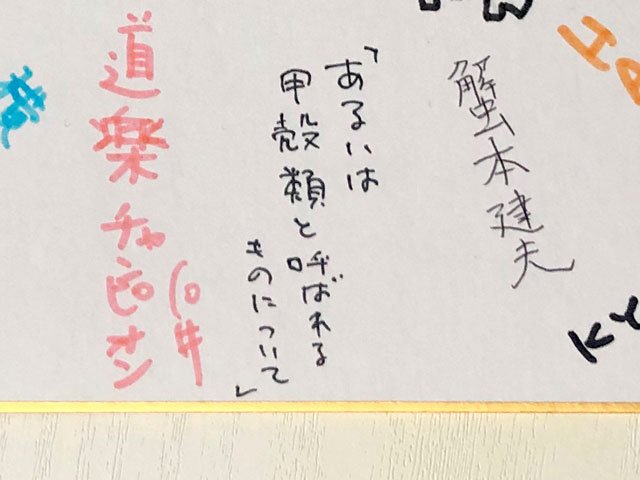 蟹本建夫
「あるいは
甲殻類と呼ばれる
ものについて」
道楽チャンピオン